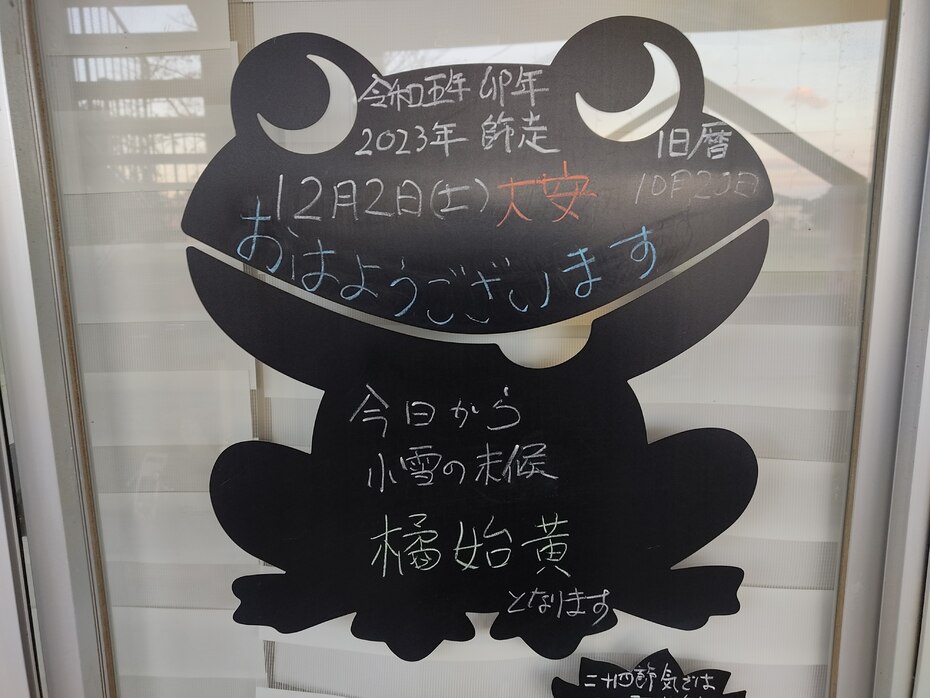 令和五年 卯年
2023年 師走
12月2日(土) 大安
旧暦
10月20日
おはようございます
今日から
小雪の末候
橘始黄
となります
二十四節気では